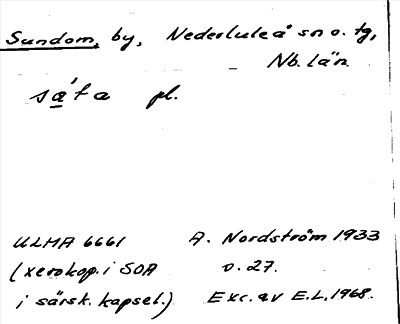 Sundom, by, Nederluleå sn o. tg,
Nb. län.
sáta pl.
ULMA 6661 A. Nordström 1933
(xerokop. i SOA o. 27.
i särsk. kapsel.) Exc. av E.L. 1968.